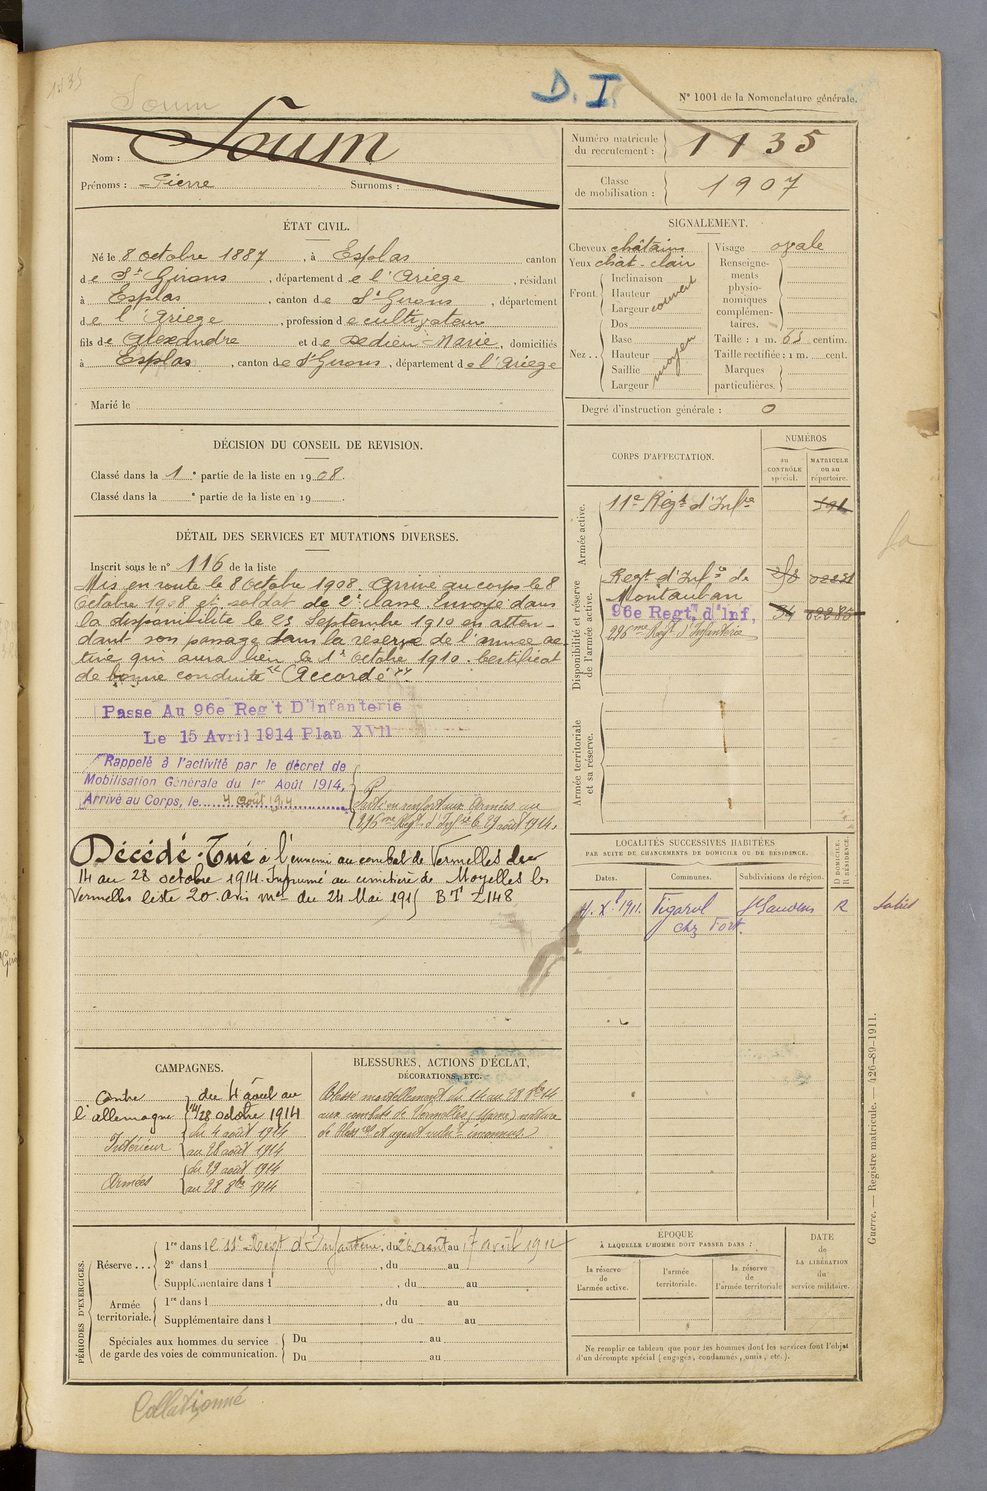 1535
Soum
D. I.
N° 1001 de la Nomenclature générale.
Nom : Soum
Prénoms : Pierre Surnoms :
Numéro matricule du recrutement : 1135
Classe de mobilisation : 1907
ÉTAT CIVIL.
Né le 8 octobre 1887, à Esplas canton
de St Girons, département de l'Ariège, résidant
à Esplas, canton de St Girons, département
de l'Ariège, profession de cultivateur
fils de Alexandre et de Marie, domiciliés
à Esplas, canton de St Girons, département de l'Ariège
Marié le
SIGNALEMENT.
Cheveux châtains
Yeux chât-clair
Front. Inclinaison
Hauteur
Largeur couvert
Nez.. Dos
Base
Hauteur
Saillie
Largeur moyen
Visage ovale
Renseignements physionomiques complémentaires.
Taille : 1 m. 65 centim.
Taille rectifiée : 1 m. cent.
Marques particulières.
Degré d'instruction générale : 0
DÉCISION DU CONSEIL DE REVISION.
Classé dans la 1e partie de la liste en 1908.
Classé dans la e partie de la liste en 19 .
DÉTAIL DES SERVICES ET MUTATIONS DIVERSES.
Inscrit sous le n° 116 de la liste
Mis en route le 8 Octobre 1908. Arrivé au corps le 8
Octobre 1908 et soldat de 2e classe. Envoyé dans
la disponibilité le 25 Septembre 1910 en atten-
dant son passage dans la réserve de l'armée ac-
tive qui aura lieu le 1er Octobre 1910. Certificat
de bonne conduite "Accordé".
Passe Au 96e Reg't D'Infanterie
Le 15 Avril 1914 Plan XVII
Rappelé à l'activité par le décret de
Mobilisation Générale du 1er Août 1914,
Arrivé au Corps, le 4 août 1914
Parti en renfort aux Armées au
296me Regt d'Infie le 29 août 1914.
Décédé - Tué à l'ennemi au combat de Vermelles du
14 au 28 octobre 1914. Inhumé au cimetière de Noyelles les
Vermelles liste 20. Avis mel du 24 Mai 1915 BT 2148
CORPS D'AFFECTATION.
NUMÉROS
au CONTRÔLE spécial.
MATRICULE ou au répertoire.
Armée active.
11e Régt d'Infie
Disponibilité et réserve de l'armée active.
Regt d'Infie de
Montauban
96e Regt, d'Inf,
296me Regt d'Infanterie
Armée territoriale et sa réserve.
LOCALITÉS SUCCESSIVES HABITÉES
PAR SUITE DE CHANGEMENTS DE DOMICILE OU DE RÉSIDENCE.
Dates. Communes. Subdivisions de région. D DOMICILE. R RÉSIDENCE.
1911. Figarol St Gaudens R
chez Fort.
CAMPAGNES.
Contre l'allemagne du 4 août au
28 octobre 1914
Intérieur du 4 août 1914
au 28 août 1914
Armées du 29 août 1914
au 28 8bre 1914
BLESSURES, ACTIONS D'ÉCLAT,
DÉCORATIONS, ETC.
Blessé mortellement du 14 au 28 8bre 14
aux combats de Vermelles (Marne) nature
de bless res et agent vuln t inconnus.
PÉRIODES D'EXERCICES.
Réserve... 1re dans le 11e Regt d'Infanterie, du 26 au 17 avril 1912
2e dans l , du au
Supplémentaire dans l , du au
Armée territoriale. 1re dans l , du au
Supplémentaire dans l , du au
Spéciales aux hommes du service de garde des voies de communication. Du au
Du au
ÉPOQUE
À LAQUELLE L'HOMME DOIT PASSER DANS :
la réserve de l'armée active.
l'armée territoriale.
la réserve de l'armée territoriale
DATE de LA LIBÉRATION du service militaire.
Ne remplir ce tableau que pour les hommes dont les services font l'objet
d'un décompte spécial (engagés, condamnés, omis, etc.).
Guerre. — Registre matricule. — 426-89-1911.
Collationné